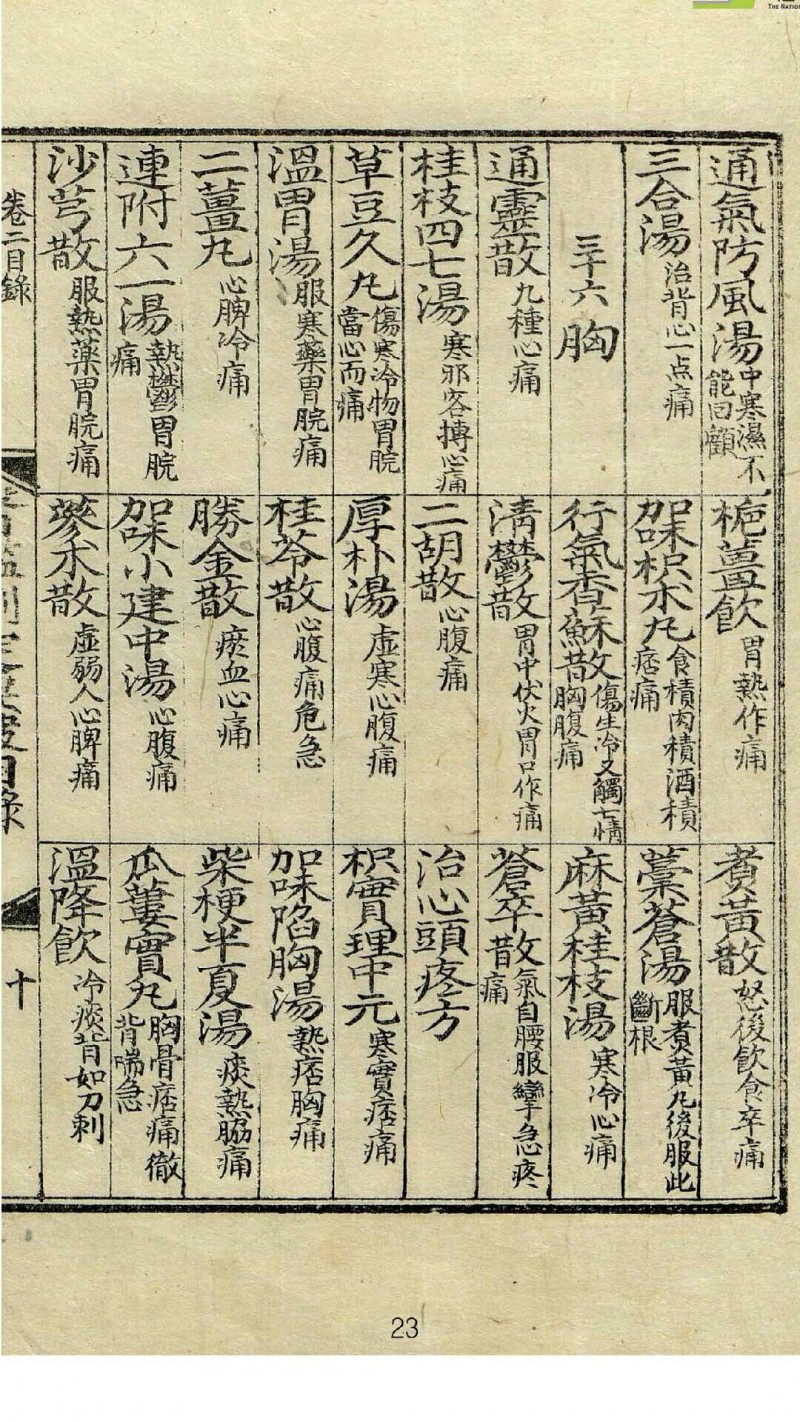 THE NATION
通氣防風湯 中寒濕不能回顧
梔薑飮 胃熱作痛
煮黃散 怒後飮食卒痛
三合湯 治背心一点痛
加味枳朮丸 食積肉積酒積痞痛
藁蒼湯 服煮黃丸後服此斷根
三十六 胸
行氣香蘇散 傷生冷又觸七情胸腹痛
麻黃桂枝湯 寒冷心痛
通靈散 九種心痛
淸鬱散 胃中伏火胃口作痛
蒼卒散 氣自腰服攣急疼痛
桂枝四七湯 寒邪客搏心痛
二胡散 心腹痛
治心頭疼方
草豆久丸 傷寒冷物胃脘當心而痛
厚朴湯 虛寒心腹痛
枳實理中元 寒實痞痛
溫胃湯 服寒藥胃脘痛
桂苓散 心腹痛危急
加味陷胸湯 熱痞胸痛
二薑丸 心脾冷痛
勝金散 瘀血心痛
柴梗半夏湯 痰熱脇痛
連附六一湯 熱鬱胃脘痛
加味小建中湯 心腹痛
瓜蔞實丸 胸骨痞痛徹背喘急
沙芎散 服熱藥胃脘痛
蔘朮散 虛弱人心脾痛
溫降飮 冷痰背如刀刺
卷二目錄
十
23